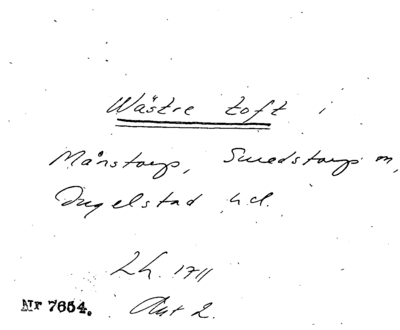 Wästre toft i
Månstorp, Smedstorp sn,
Ingelstad hd.
Lh. 1711
Nr 7654. Akt 2.